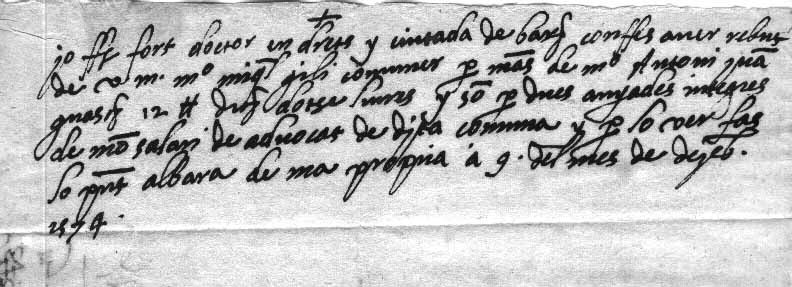 +
jo ffr fort doctor en drets y ciutada de barª confes auer rebut
de v. m. mº miql gili comuner p mãs de mº Antoni juã
12 ₶ dich dotse liures y sõ p dues anyades integres
de mõ salari de aduocat de dita comuna y p lo ver fas
lo pñt albara de ma propria a 9. del mes de dezeb.
1574.